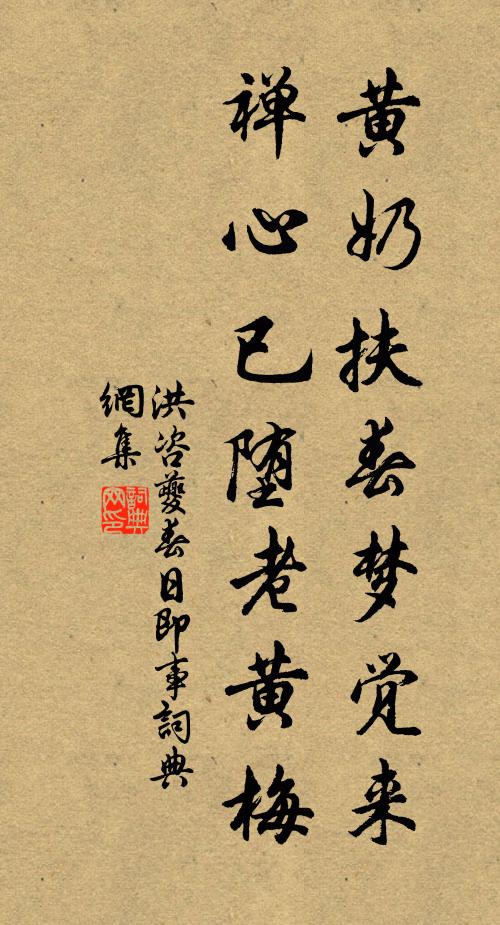 黄奶扶春梦觉来
禅心已堕老黄梅
洪咨夔春日即事詞典
網集
詞典
网印